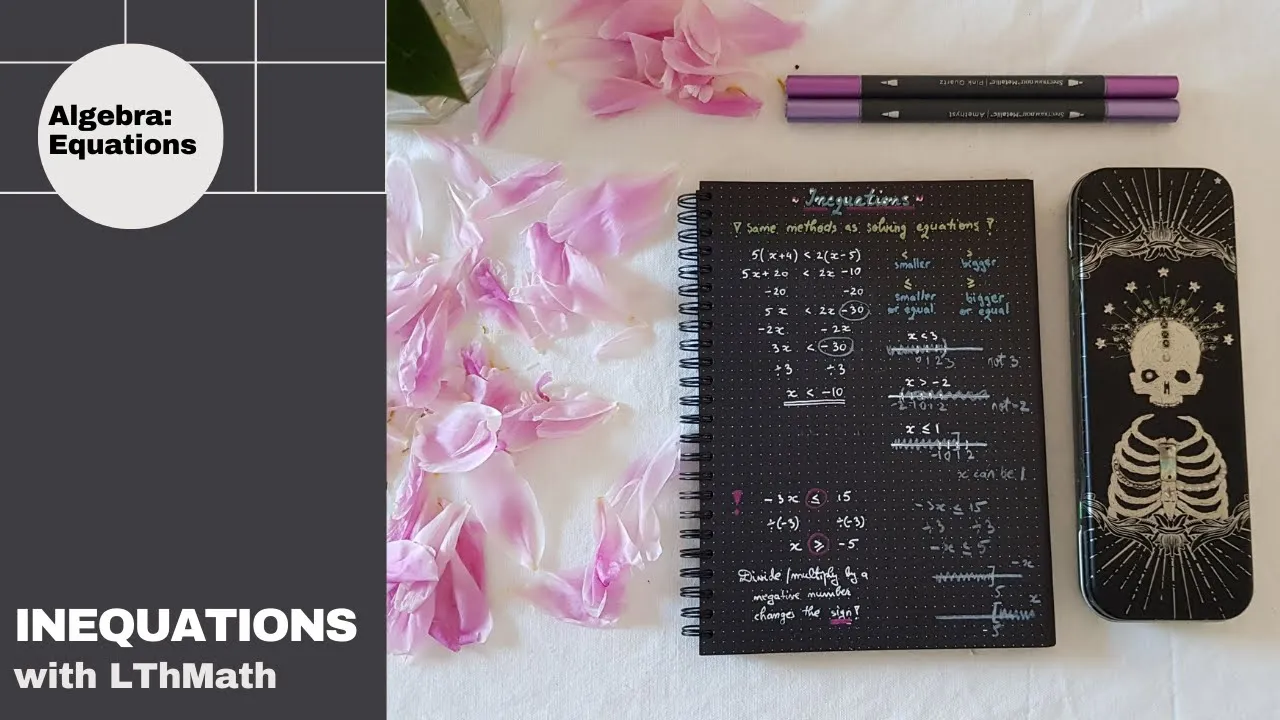 Algebra:
Equations
INEQUATIONS
with LThMath
Spectrum noir Metallic | Pink Quartz
Spectrum noir Metallic | Amethyst
~ Inequations ~
! Same methods as solving equations !
5(x+4) < 2(x-5)
5x+20 < 2x -10
-20 -20
5x < 2x -30
-2x -2x
3x < -30
÷3 ÷3
x < -10
< >
smaller bigger
≤ ≥
smaller bigger
or equal or equal
x < 3
0 1 2 3 not 3
x > -2
-2 -1 0 1 2 not -2
x ≤ 1
-1 0 1 2
x can be 1
! -3x ≤ 15
÷(-3) ÷(-3)
x ≥ -5
Divide/multiply by a
negative number
changes the sign!
-3x ≤ 15
÷3 ÷3
-x ≤ 5
-x
5
x
-5